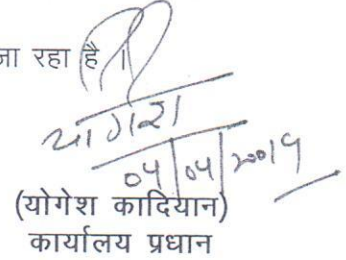 जा रहा है ।
योगेश
04/04/2019
(योगेश कादियान)
कार्यालय प्रधान